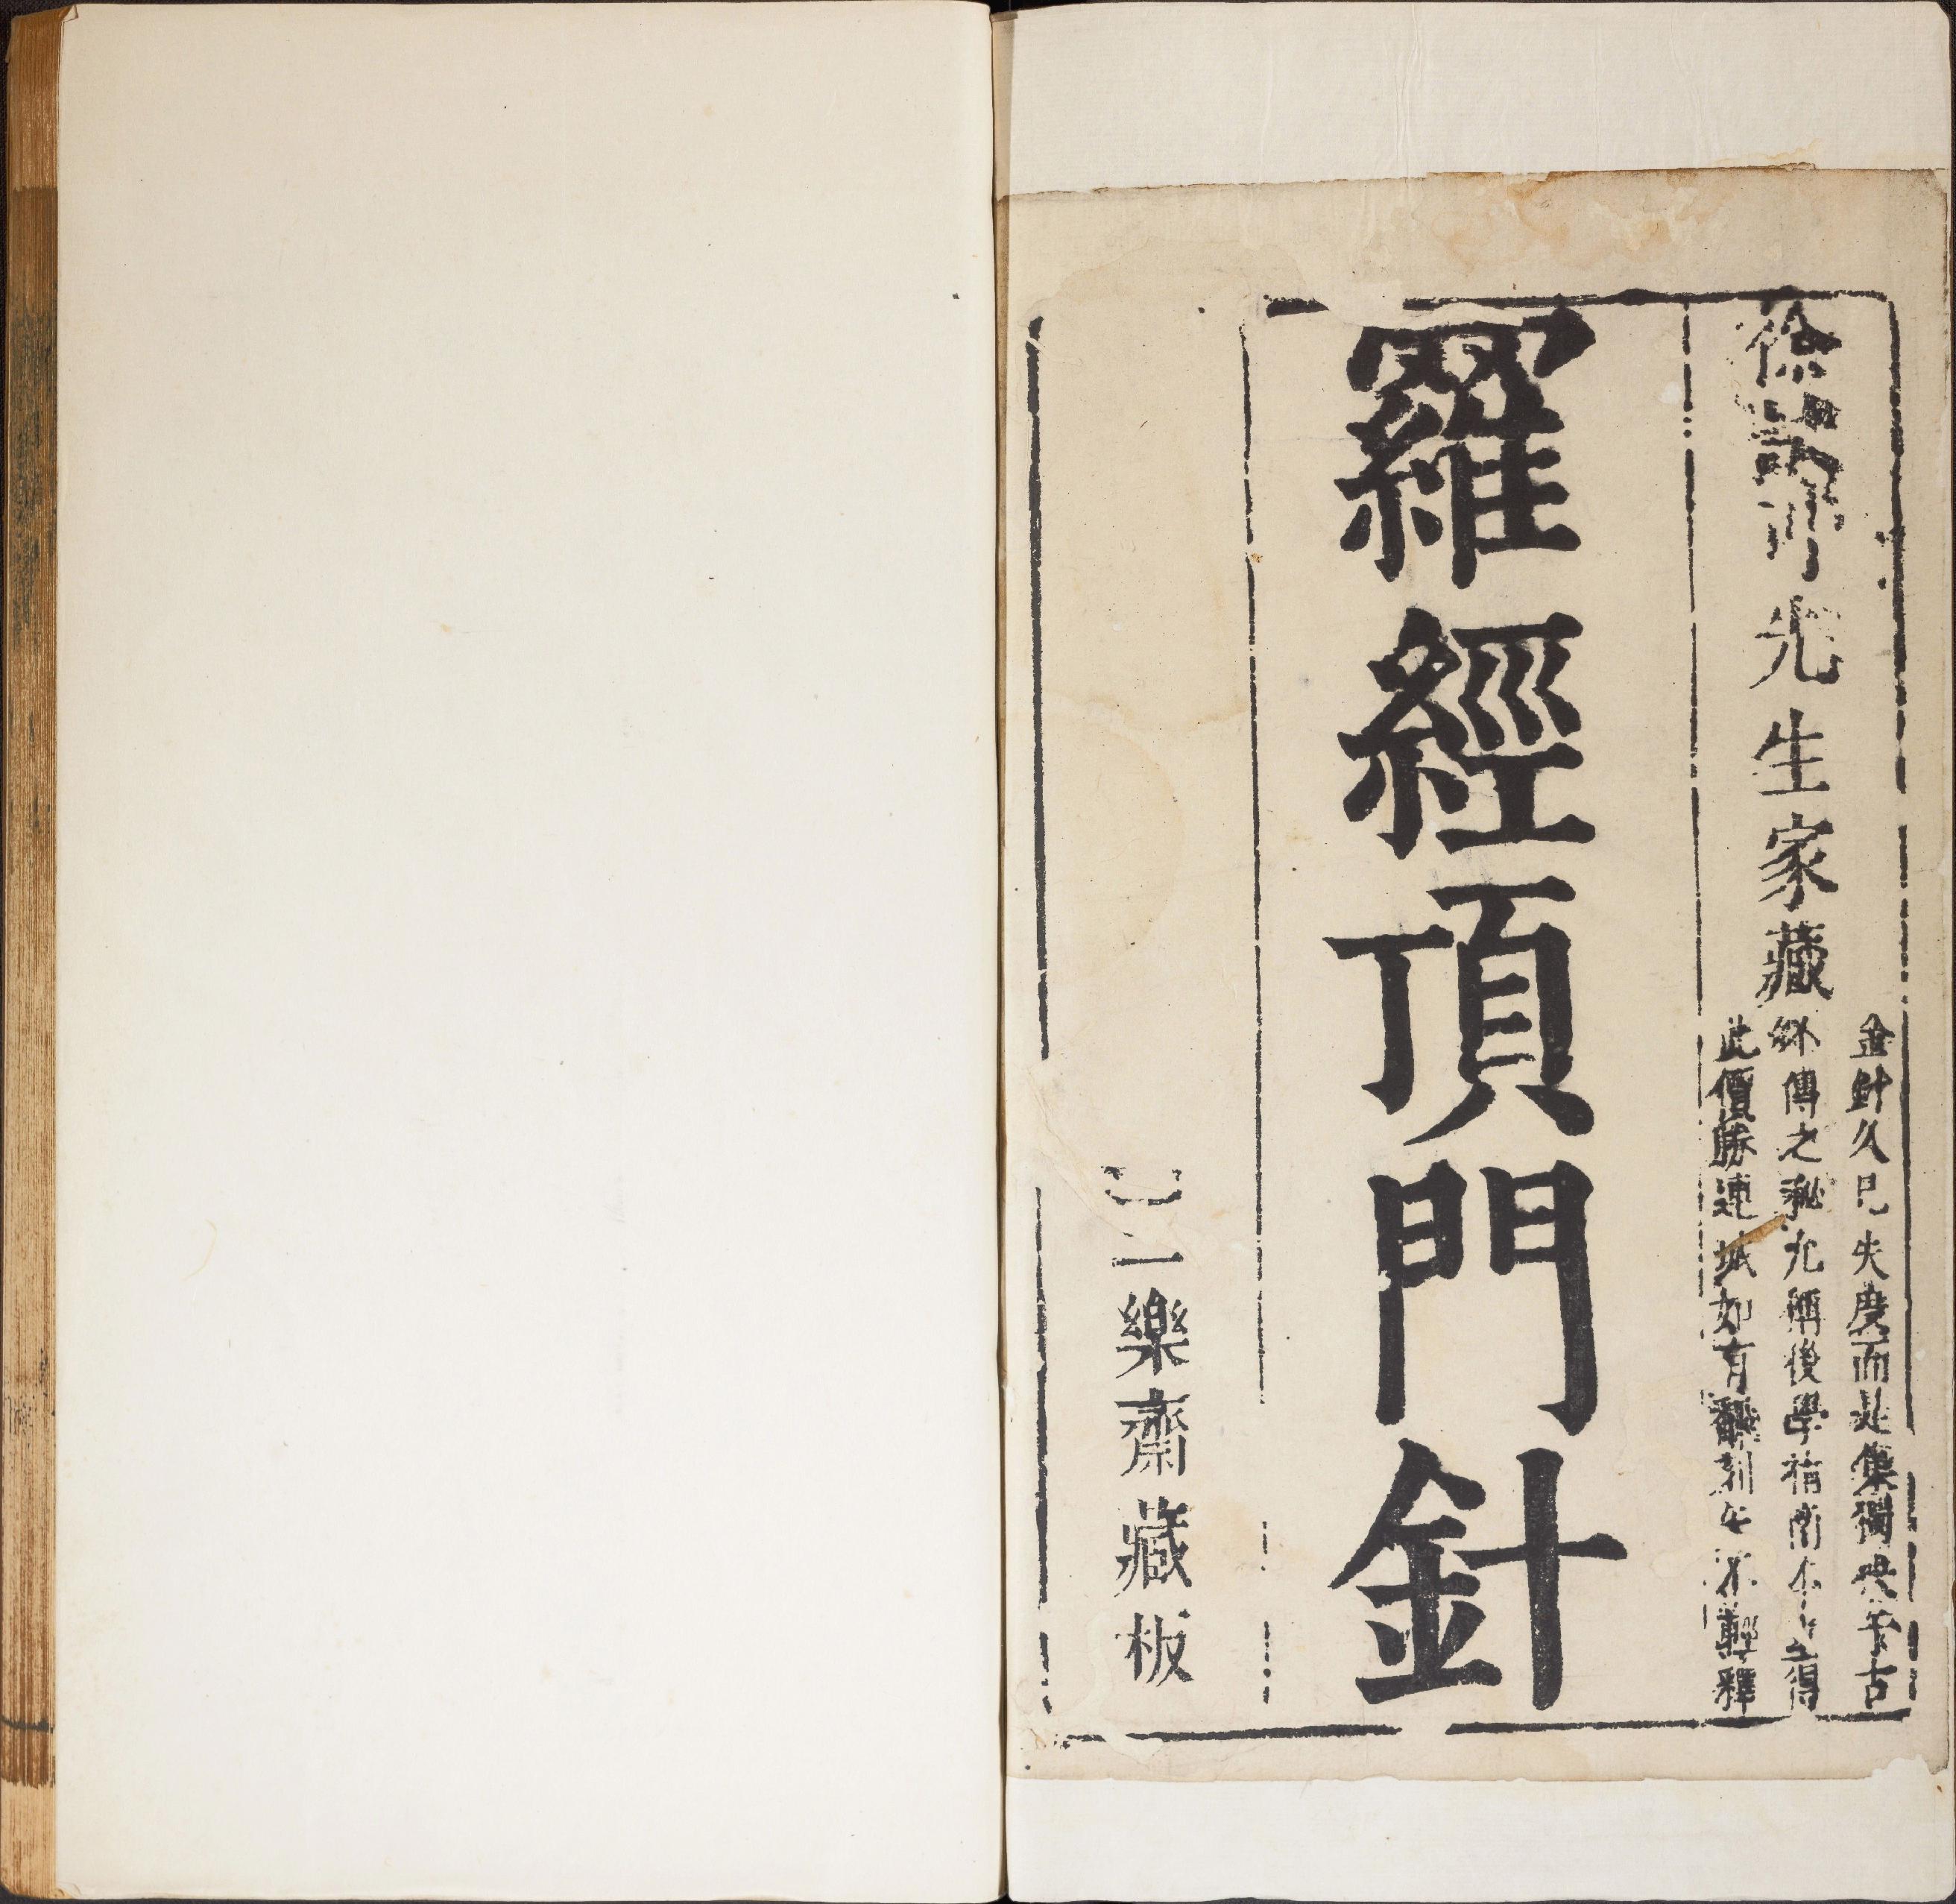 徐先生家藏
金針久已失度而是集獨洩千古
傳之秘尤稱後學指南得
此價勝連城如有翻刻不輕釋
羅經頂門針
三樂齋藏板